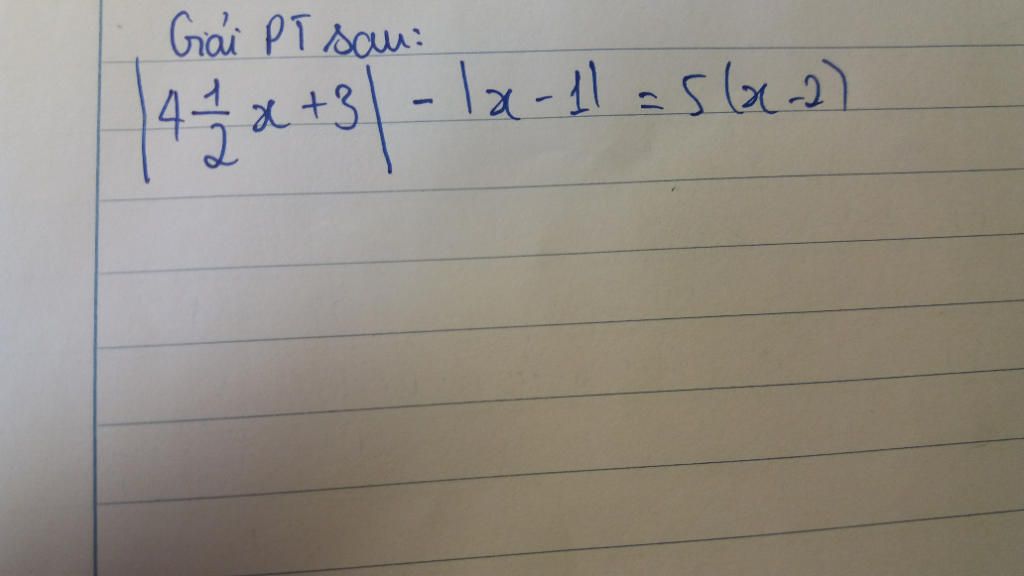 Giải PT sau:
|4 1/2 x + 3| - |x - 1| = 5(x - 2)